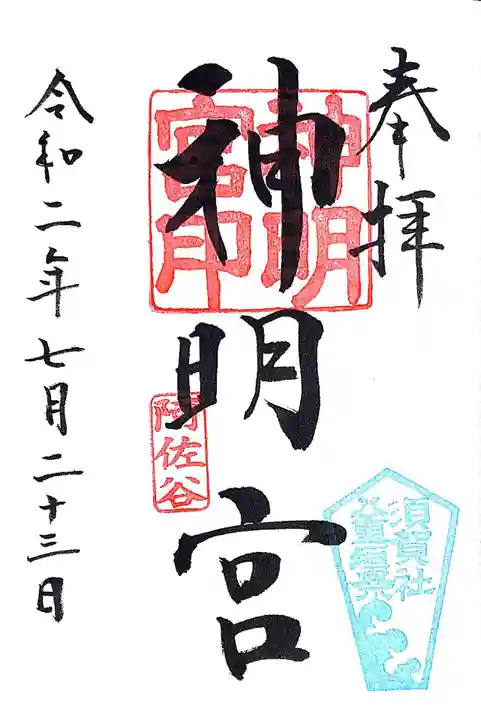 奉拝
神明宮
神明
宮印
阿佐谷
須賀社
八重垣輿
令和二年七月二十三日